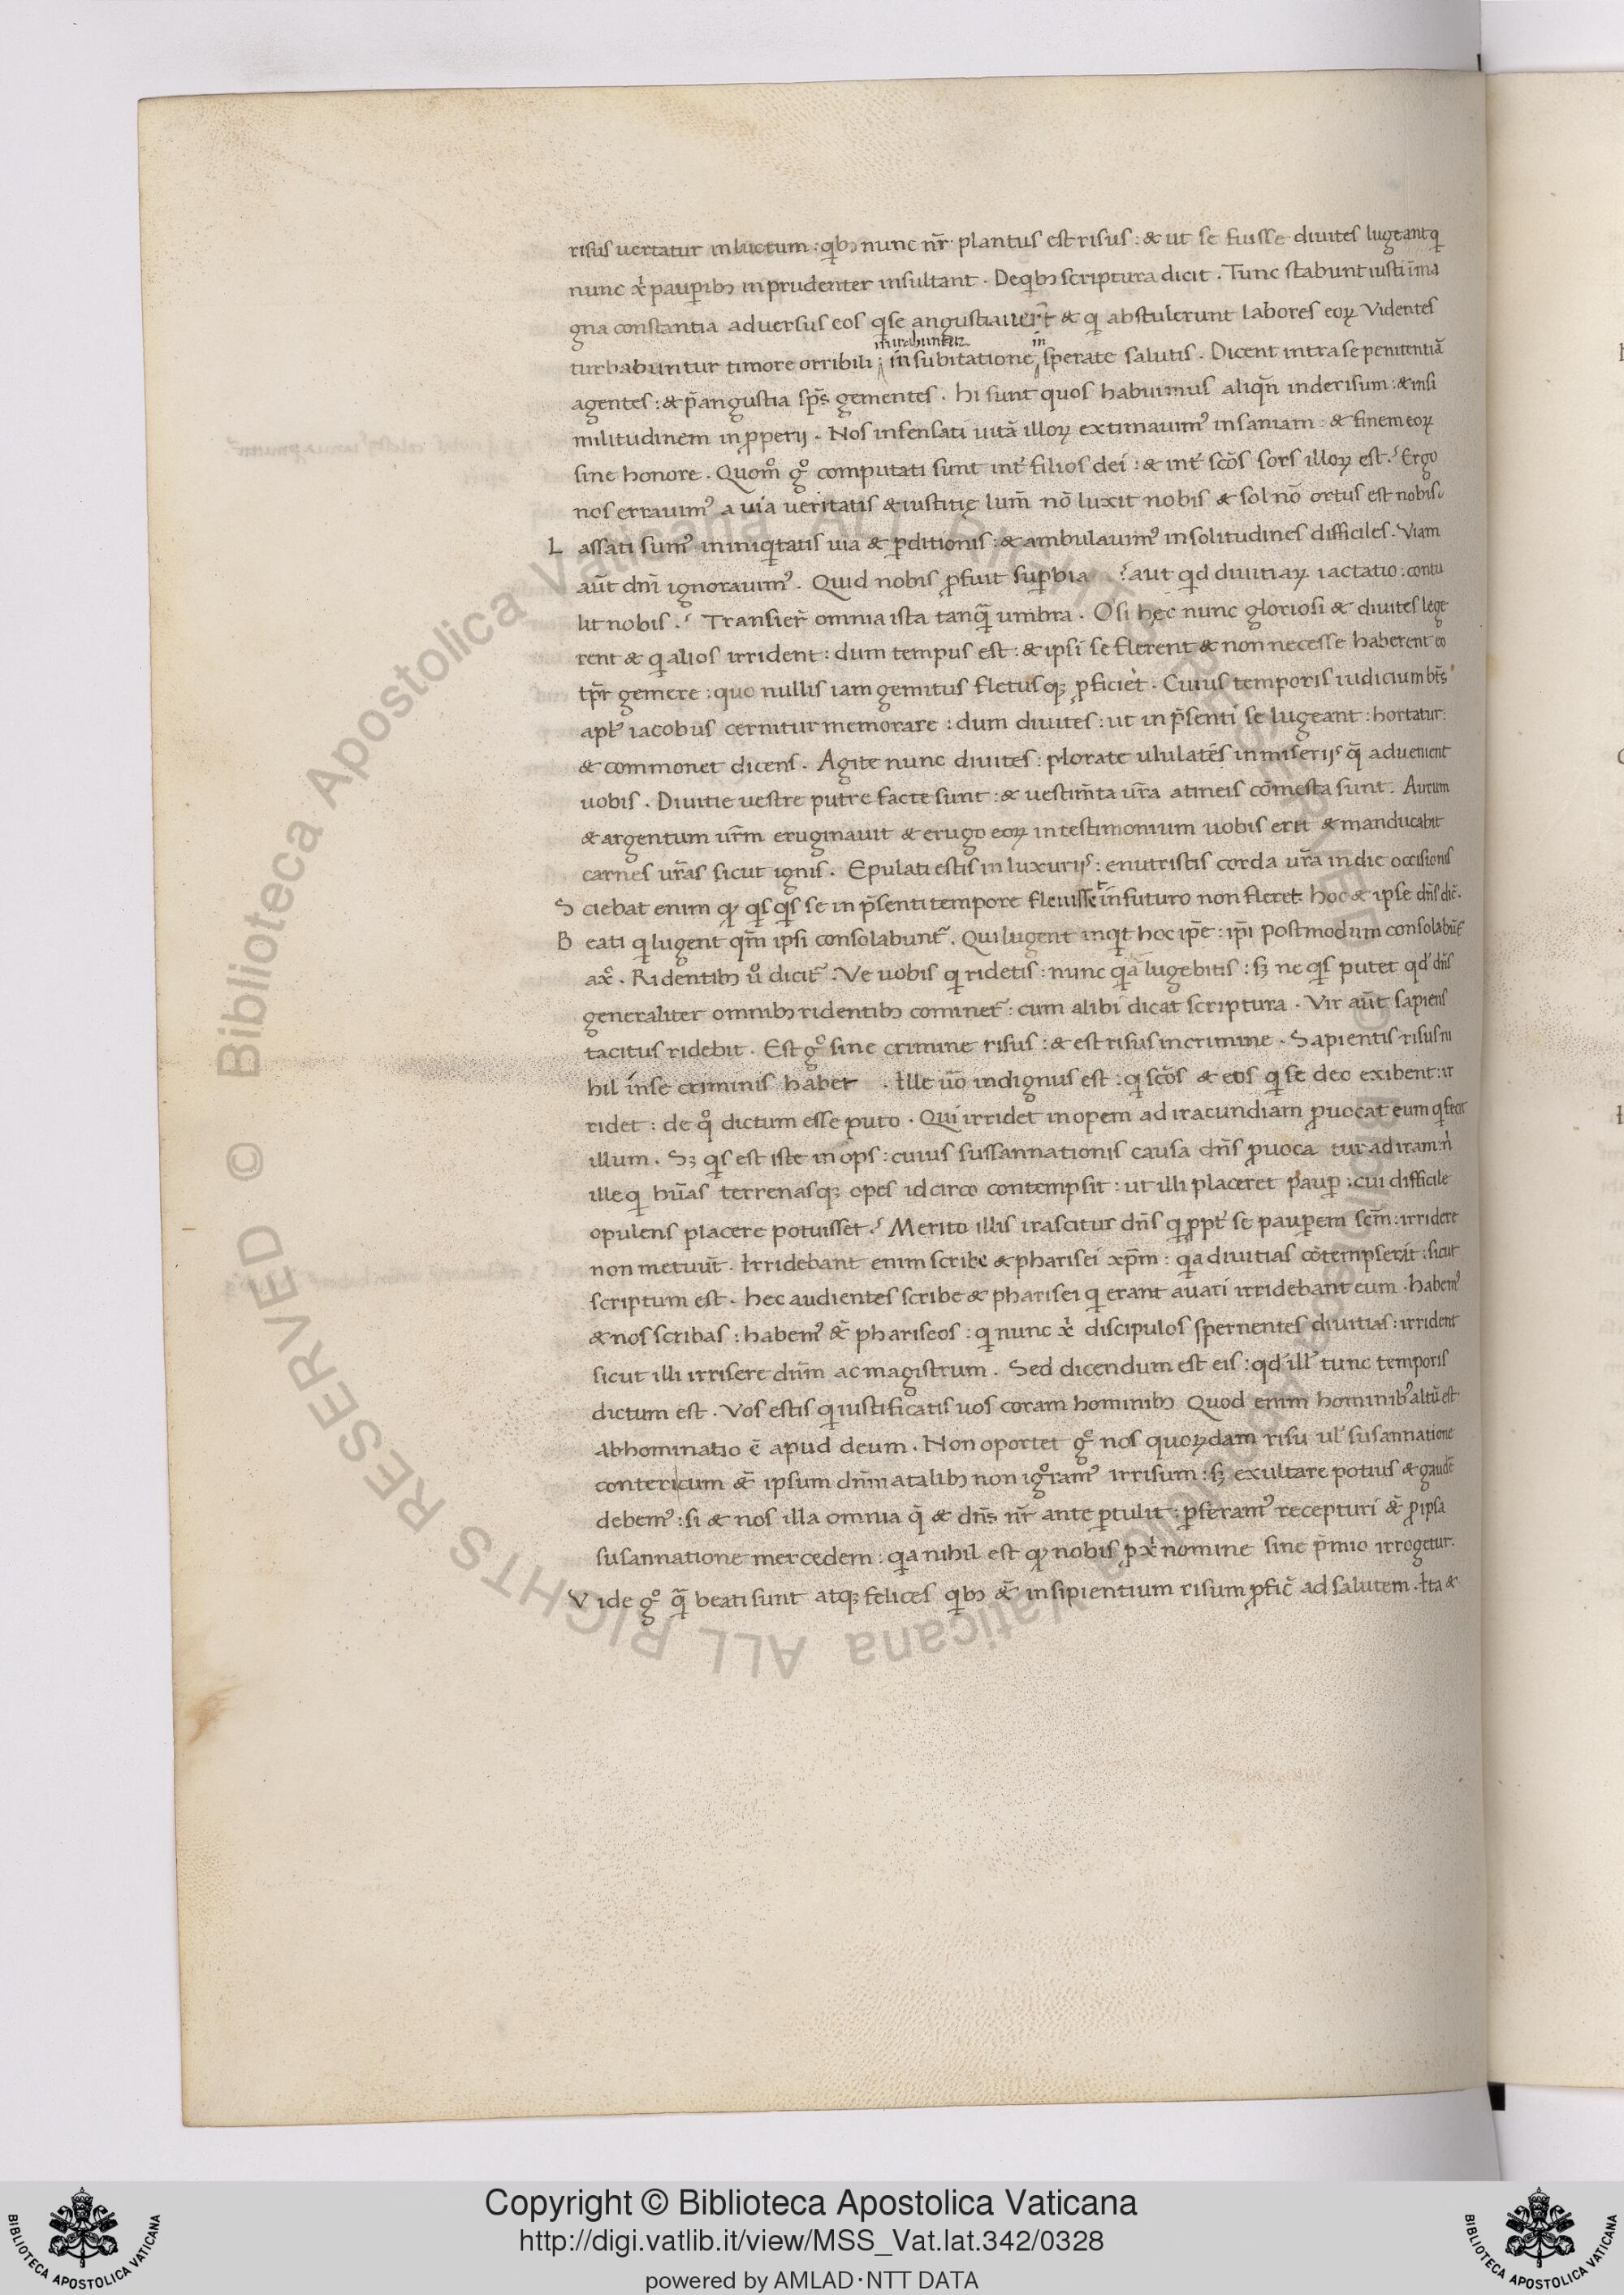 risus uertatur in luctum : qbꝫ nunc nr̄ plantus est risus : & ut se fuisse diuites lugeant q
nunc xṗ pauꝑibꝫ inprudenter insultant . De qbꝫ scriptura dicit . Tunc stabunt iusti in ma
gna constantia aduersus eos q se angustiauer̄t & q abstulerunt labores eoꝝ Videntes
mirabuntur in
turbabuntur timore orribili ; in subitatione sperate salutis . Dicent intra se penitentiā
agentes : & p̄ angustia sp̄s gementes . hi sunt quos habuimus aliqn̄ in derisum : & in si
militudinem inꝓperij . Nos insensati uitā illoꝝ extimauimꝰ insaniam : & finem eoꝝ
sine honore . Quom̊ g̊ computati sunt int̓ filios dei : & int̓ scōs sors illoꝝ est . Ergo
nos errauimꝰ a uia ueritatis & iustitię lum̄ nō luxit nobis & sol nō ortus est nobis .
L assati sumꝰ in iniqtatis uia & ꝑditionis : & ambulauimꝰ in solitudines difficiles . Viam
aūt dn̄i ignorauimꝰ . Quid nobis ꝓfuit suꝑbia ? aut qd diuitiaꝝ iactatio : contu
lit nobis . Transier̄ omnia ista tanq̄ umbra . O si hęc nunc gloriosi & diuites lege
rent & q alios irrident : dum tempus est : & ipsi se flerent & non necesse haberent eo
tp̄r gemere : quo nullis iam gemitus fletusqꝫ ꝓficiet . Cuius temporis iudicium bt̄s
apl̓s iacobus cernitur memorare : dum diuites : ut in p̄senti se lugeant : hortatur :
& commonet dicens . Agite nunc diuites : plorate ululates in miserijs q̄ aduenient
uobis . Diuitie uestre putre facte sunt : & uestim̄ta ur̄a a tineis cōmesta sunt . Aurum
& argentum ur̄m eruginauit & erugo eoꝝ in testimonium uobis erit & manducabit
carnes ur̄as sicut ignis . Epulati estis in luxurijs : enutristis corda ur̄a in die occisionis
S ciebat enim qꝫ qs qs se in p̄senti tempore fleuisset in futuro non fleret : hoc & ipse dn̄s dic̄ .
B eati q lugent qm̄ ipsi consolabunt̃ . Qui lugent inqt hoc ip̄e : ip̄i postmodum consolabūt̃
ax̊ . Ridentibꝫ ů dicit̃ . Ve uobis q ridetis : nunc qa lugebitis : sꝫ ne qs putet qd̓ dn̄s
generaliter omnibꝫ ridentibꝫ cominet̃ : cum alibi dicat scriptura . Vir aūt sapiens
tacitus ridebit . Est g̊ sine crimine risus : & est risus in crimine . Sapientis risus ni
hil in se criminis habet . Ille ūo indignus est : q scōs & eos q se deo exibent : ir
ridet : de q̊ dictum esse puto . Qui irridet inopem ad iracundiam ꝓuocat eum q fecit
illum . Sꝫ qs est iste inops : cuius sussannationis causa dn̄s ꝓuoca tur ad iram : n̓
ille q hūas terrenasqꝫ opes idcirco contempsit : ut illi placeret pauꝑ : cui difficile
opulens placere potuisset . Merito illis irascitur dn̄s q ꝓpt̓ se pauꝑem fcm̄ : irridere
non metuūt . Irridebant enim scribe & pharisei xp̄m : qa diuitias cōtempserit : sicut
scriptum est . hec audientes scribe & pharisei q erant auari irridebant eum . habemꝰ
& nos scribas : habemꝰ & phariseos : q nunc xṗ discipulos spernentes diuitias : irrident
sicut illi irrisere dn̄m ac magistrum . Sed dicendum est eis : qd̓ ill̓ tunc temporis
dictum est . Vos estis q iustificatis uos coram hominibꝫ Quod enim hominibꝰ altū est
abhominatio ē apud deum . Non oportet g̊ nos quoꝝdam risu ul̓ susannatione
conteri cum & ipsum dn̄m a talibꝫ non ig̊ramꝰ irrisum : sꝫ exultare potius & gaudē
debemꝰ : si & nos illa omnia q̄ & dn̄s nr̄ ante ꝑtulit : ꝑferamꝰ recepturi & ꝓ ipsa
susannatione mercedem : qa nihil est qꝫ nobis ꝓ xṗ nomine sine p̄mio irrogetur .
V ide g̊ q̄ beati sunt atqꝫ felices qbꝫ & insipientium risum ꝓfic̄ ad salutem . Ita &
© Biblioteca Apostolica Vaticana ALL RIGHTS RESERVED
Copyright © Biblioteca Apostolica Vaticana
http://digi.vatlib.it/view/MSS_Vat.lat.342/0328
powered by AMLAD·NTT DATA
BIBLIOTECA APOSTOLICA VATICANA
BIBLIOTECA APOSTOLICA VATICANA